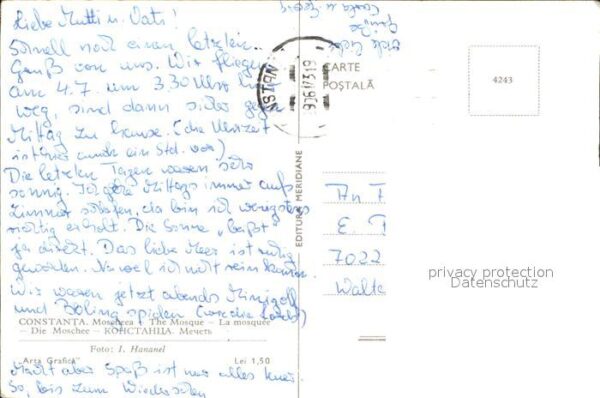 Liebe Mutti u. Vati!
Schnell noch einen letzten
Gruß von uns. Wir fliegen
am 4.7. um 3.30 Uhr hier
weg, sind dann sicher gegen
Mittag zu Hause. (die Uhrzeit
ist hier auch ein Std. vor)
Die letzten Tagen waren sehr
sonnig. Ich gehe Mittags immer aufs
Zimmer schlafen, da bin ich wenigstens
richtig erholt. Die Sonne „beißt"
ja direkt. Das liebe Meer ist ruhig
geworden.
Wir waren jetzt abends Minigolf
und Boling spielen
CONSTANȚA. Moscheea - The Mosque - La mosquée
- Die Moschee - КОНСТАНЦА. Мечеть
Foto: I. Hananel
„Arta Grafică" Lei 1,50
Macht aber Spaß ist nur alles teuer.
So, bis zum Wiedersehen
CARTE
POȘTALĂ
4243
EDITURA MERIDIANE
An F
E. T
7022
Walte
privacy protection
Datenschutz